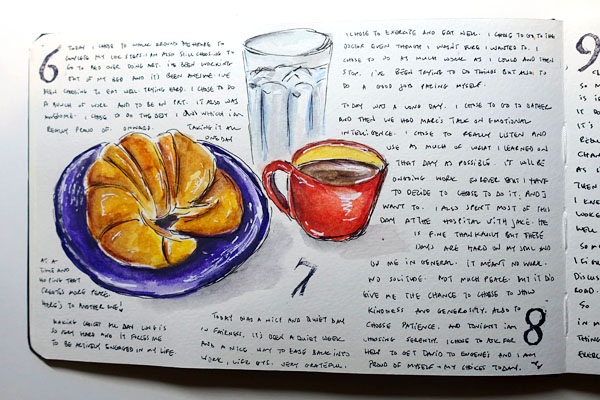 6 TODAY I CHOSE TO WALK AROUND BEFORE TO
COMPLETE MY STEPS. I AM ALSO STILL CHOOSING TO
GO TO BED OVER DOING ART. I'VE BEEN WORKING
OUT OF MY BED AND IT'S BEEN AWESOME. I'VE
BEEN CHOOSING TO EAT WELL TRYING HARD. I CHOSE TO DO
A BUNCH OF WORK AND TO BE IN ART. IT ALSO WAS
AWESOME. I CHOSE TO DO THE BEST I WHICH I AM
REALLY PROUD OF. ONWARD. TAKING IT ALL
ONE DAY
AT A
TIME AND
HOPING THAT
CREATES MORE PEACE.
HERE'S TO ANOTHER ME!
MAKING CHOICES ALL DAY LONG IS
SO VERY HARD AND IT FORCES ME
TO BE ACTIVELY ENGAGED IN MY LIFE.
7
TODAY WAS A NICE AND QUIET DAY
IN FAIRNESS, IT'S BEEN A QUIET WEEK
AND A NICE WAY TO EASE BACK INTO
WORK, LIFE ETC. VERY GRATEFUL.
I CHOSE TO EXERCISE AND EAT WELL. I CHOSE TO GO TO THE
DOCTOR EVEN THOUGH I WASN'T SURE I WANTED TO. I
CHOSE TO DO AS MUCH WORK AS I COULD AND THEN
STOP. I'VE BEEN TRYING TO DO THINGS BUT ALSO TO
DO A GOOD JOB PACING MYSELF.
TODAY WAS A LONG DAY. I CHOSE TO GO TO GATHER
AND THEN WE HAD MARC'S TALK ON EMOTIONAL
INTELLIGENCE. I CHOSE TO REALLY LISTEN AND
USE AS MUCH OF WHAT I LEARNED ON
THAT DAY AS POSSIBLE. IT WILL BE
ONGOING WORK FOREVER BUT I HAVE
TO DECIDE TO CHOSE TO DO IT. AND I
WANT TO. I ALSO SPENT MOST OF THIS
DAY AT THE HOSPITAL WITH JAKE. HE
IS FINE THANKFULLY BUT THESE
DAYS ARE HARD ON MY SOUL AND
ON ME IN GENERAL. IT MEANT NO WORK.
NO SOLITUDE. NOT MUCH PEACE. BUT IT DID
GIVE ME THE CHANCE TO CHOSE TO SHOW
KINDNESS AND GENEROSITY. ALSO TO
CHOOSE PATIENCE. AND TONIGHT I AM
CHOOSING SERENITY. I CHOSE TO ASK FOR
HELP TO GET DAVID TO EUGENE AND I AM
PROUD OF MYSELF + MY CHOICES TODAY.
8
9